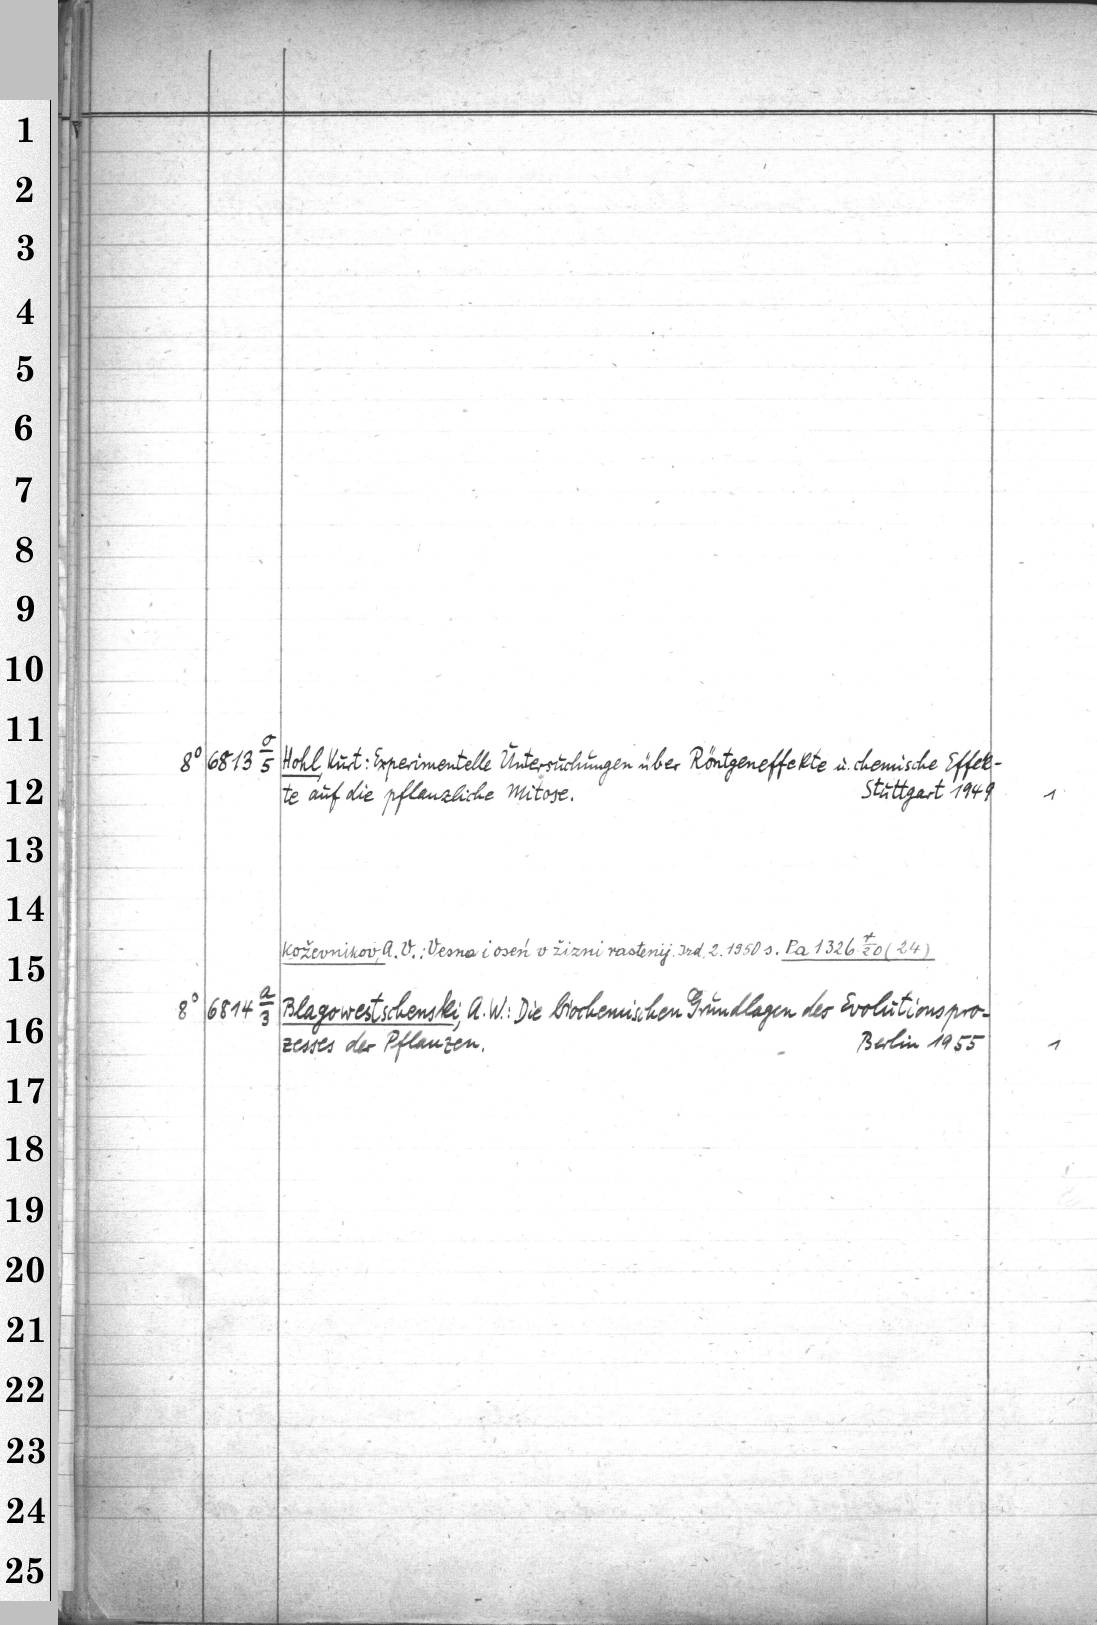 1
2
3
4
5
6
7
8
9
10
11
8° 6813 σ/5 Hohl, Kurt: Experimentelle Untersuchungen über Röntgeneffekte u. chemische Effek-
12
te auf die pflanzliche Mitose. Stuttgart 1949 1
13
14
Koževnikov, A. V.: Vesna i oseń v žizni rastenij. Izd. 2. 1950 s. Pa 1326 /20 (24)
15
8° 6814 a/3 Blagowestschenski, A. W.: Die biochemischen Grundlagen des Evolutionspro-
16
zesses der Pflanzen. Berlin 1955 1
17
18
19
20
21
22
23
24
25